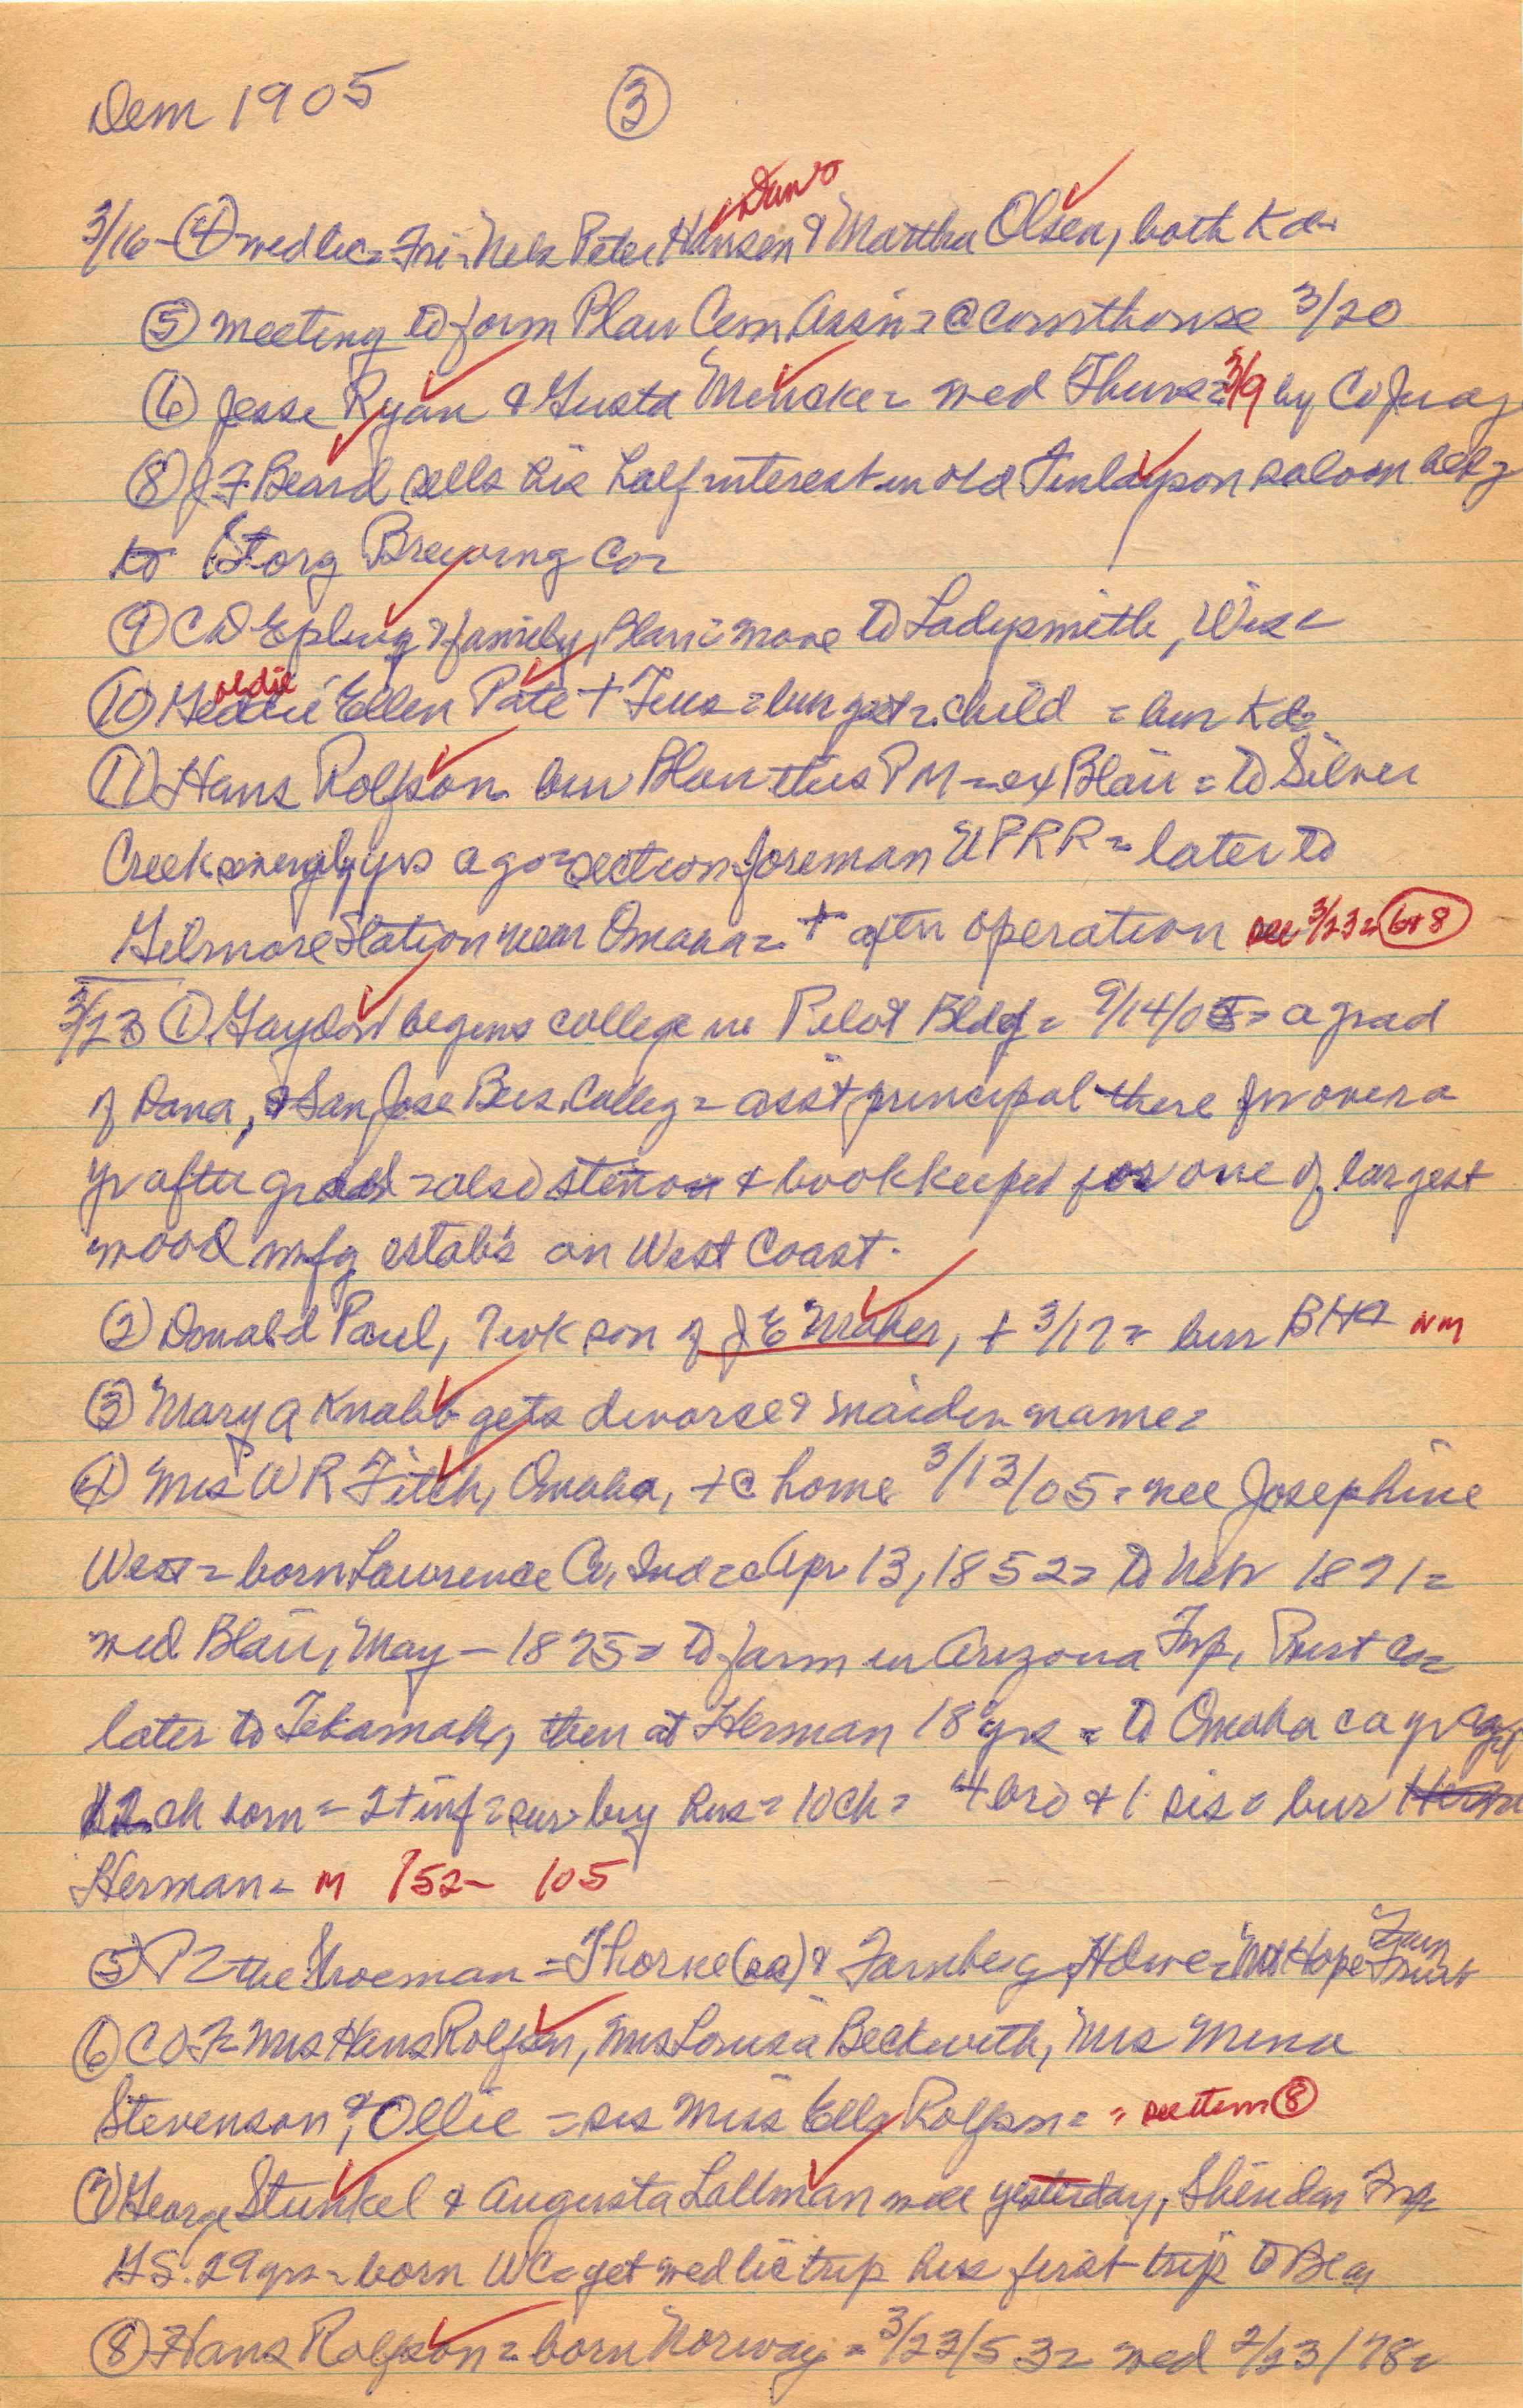 Dem 1905 ③
3/16 - ④ wed lic = Fri = Nels Peter Hansen & Martha Olsen, both Kd =
⑤ meeting to form Blair Cem Assn = @ courthouse 3/20
⑥ Jesse Ryan & Gusta Mencke = wed Thurs = 3/9 by Co Judge
⑧ J F Beard sells his half interest in old Finlayson saloon bldg
to Storg Brewing Co =
⑨ C D Epling & family, Blair = move to Ladysmith, Wis =
⑩ Goldie Ellen Pate + Tues = child = bur Kd =
⑪ Hans Rolfson bur Blair this PM = ex Blair = to Silver
Creek several yrs ago = section foreman UPRR = later to
Gilmore Station near Omaha = + after operation see 3/23 = 6+8
3/23 ① Gaydou begins college in Pilot Bldg = 9/14/05 = a grad
of Dana, & San Jose Bus. Colleg = asst principal there for over a
yr after grad = also steno & bookkeeper for one of largest
wood mfg estabs on West Coast.
② Donald Paul, 7 wk son of J E Maher, + 3/17 = bur BHA NM
③ Mary A Knabb gets divorse & maiden name =
④ Mrs W R Fitch, Omaha, + @ home 3/13/05 = nee Josephine
West = born Lawrence Co, Ind = Apr 13, 1852 = to Neb 1871 =
wed Blair, May - 1875 = to farm in Arizona Twp, Burt Co =
later to Tekamah, then at Herman 18 yrs = to Omaha ca yr ago
12 ch born = 2 + inf = sur by hus = 10 ch = 4 bro & 1 sis = bur
Herman = M 152 - 105
⑤ P Z the Shoeman = Thorne (sa) & Farnberg, Howe = Mt Hope
⑥ C O T = Mrs Hans Rolfson, Mrs Louisa Beckwith, Mrs Mina
Stevenson, & Ollie = sis Miss Ella Rolfson = = see item ⑧
⑦ George Stunkel & Augusta Lallman wed yesterday, Sheridan Twp
GS. 29 yrs = born WC = get wed lic trip his first trip to Blair
⑧ Hans Rolfson = born Norway = 3/23/53 = wed 2/23/78 =